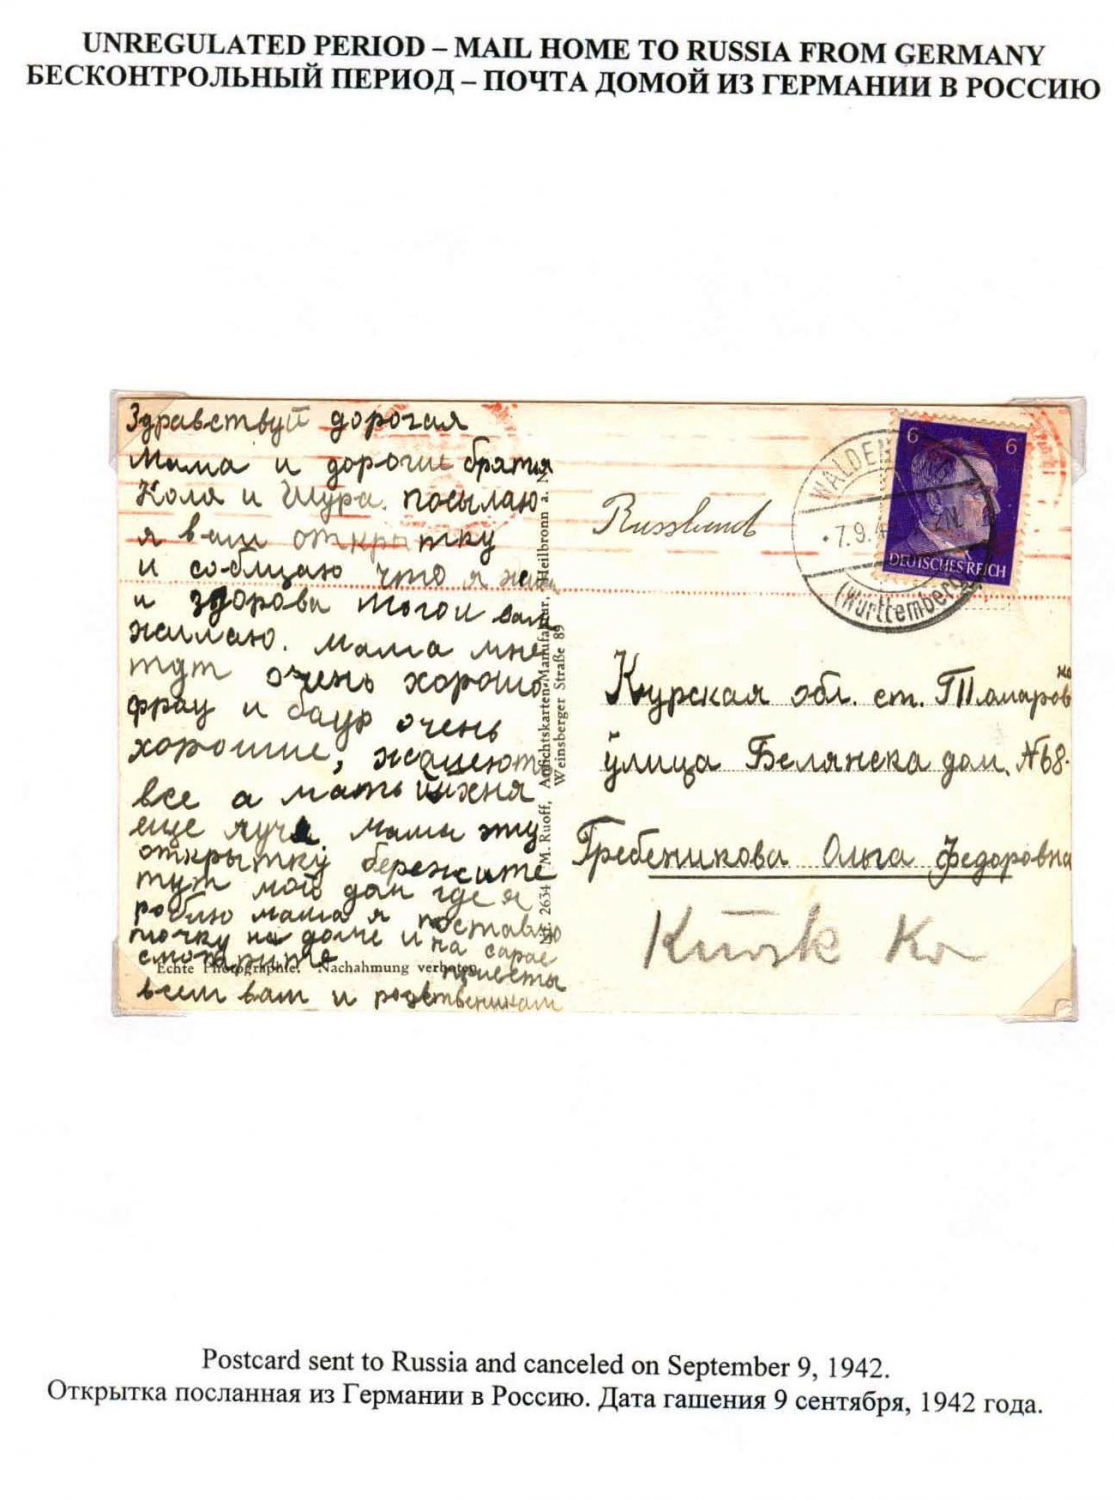 UNREGULATED PERIOD – MAIL HOME TO RUSSIA FROM GERMANY
БЕСКОНТРОЛЬНЫЙ ПЕРИОД – ПОЧТА ДОМОЙ ИЗ ГЕРМАНИИ В РОССИЮ
Здравствуй дорогая
мама и дорогие братия
Коля и Шура. посылаю
я вам открытку
и сообщаю что я жива
и здорова того и вам
желаю. мама мне
тут очень хорошо
фрау и баур очень
хорошие, жалеют
все а мать ихня
еще луче мама эту
открытку бережите
тут мой дом где я
роблю мама я поставлю
точку на доме и на сарае
смотрите приветы
всем вам и родственикам
Echte Photographie. Nachahmung verboten.
Nr. 2634 M. Ruoff, Ansichtskarten-Manufaktur, Heilbronn a. N.
Weinsberger Straße 89
Russland
WALDENBURG
7.9.4
(Württemberg)
6 6
DEUTSCHES REICH
Курская обл. ст. Томаровка
улица Белянска дом. №68.
Гребеникова Ольга Федоровна
Kursk
Postcard sent to Russia and canceled on September 9, 1942.
Открытка посланная из Германии в Россию. Дата гашения 9 сентября, 1942 года.